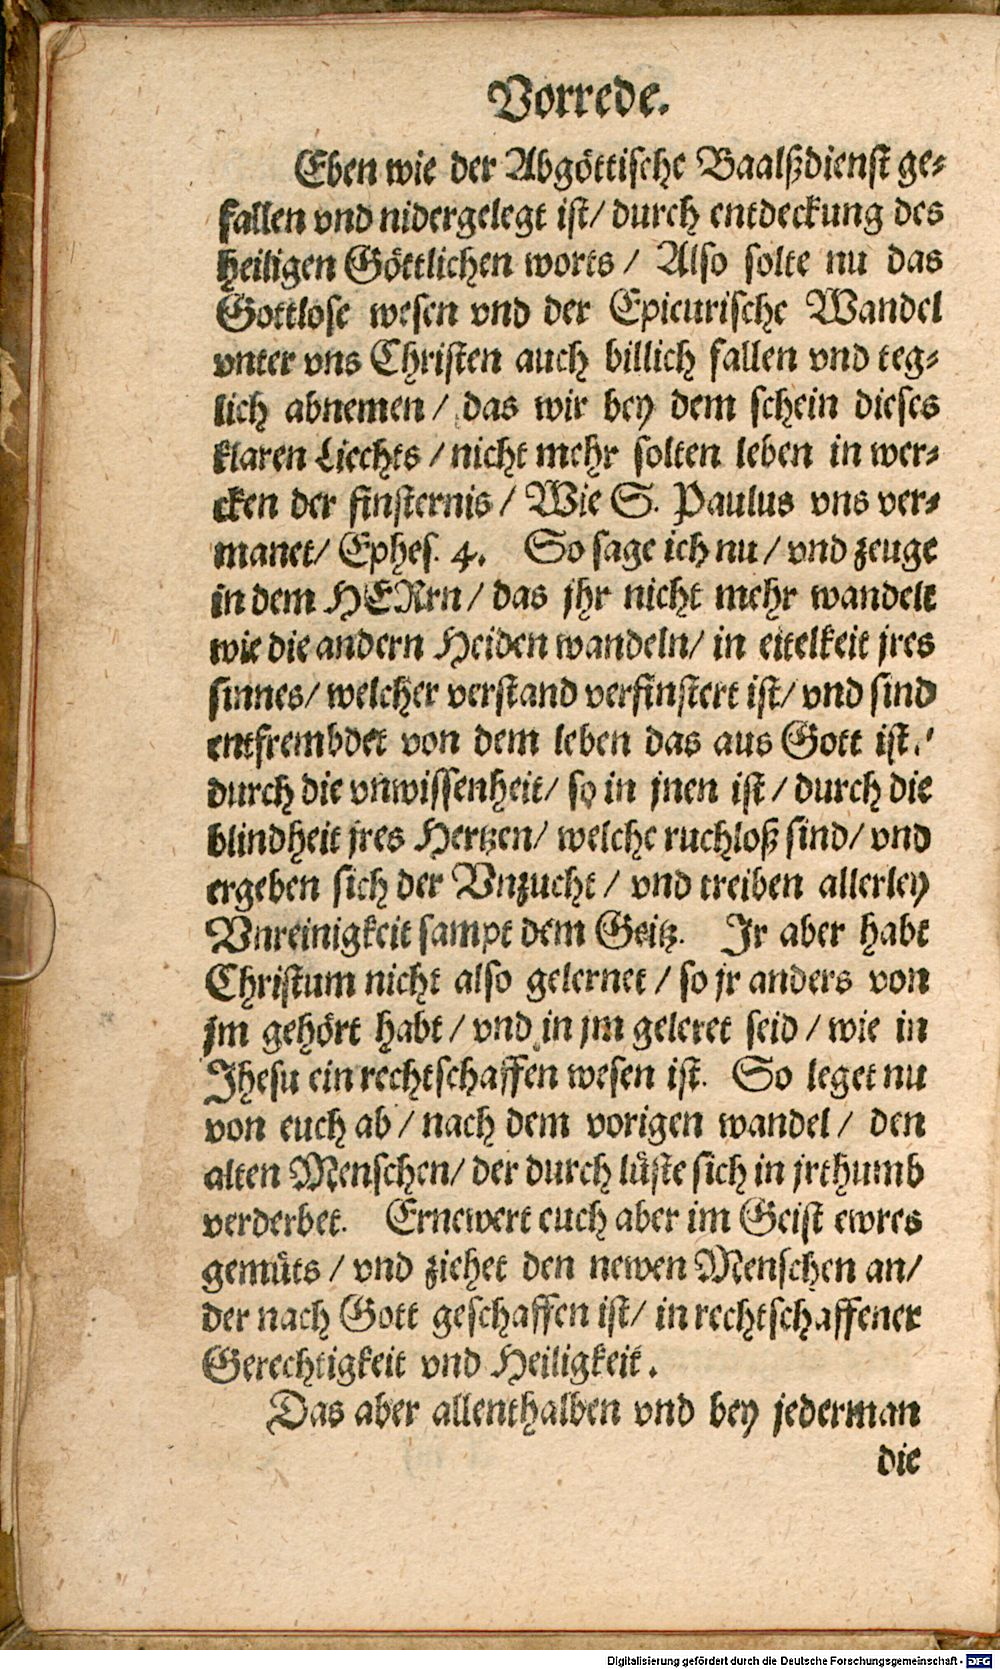 Vorrede.
Eben wie der Abgöttische Baalßdienst ge-
fallen vnd nidergelegt ist/ durch entdeckung des
heiligen Göttlichen worts / Also solte nu das
Gottlose wesen vnd der Epicurische Wandel
vnter vns Christen auch billich fallen vnd teg-
lich abnemen / das wir bey dem schein dieses
klaren Liechts / nicht mehr solten leben in wer-
cken der finsternis / Wie S. Paulus vns ver-
manet/ Ephes. 4. So sage ich nu / vnd zeuge
in dem HERrn / das jhr nicht mehr wandelt
wie die andern Heiden wandeln/ in eitelkeit jres
sinnes/ welcher verstand verfinstert ist/ vnd sind
entfrembdet von dem leben das aus Gott ist/
durch die vnwissenheit/ so in jnen ist / durch die
blindheit jres Hertzen/ welche ruchloß sind/ vnd
ergeben sich der Vnzucht / vnd treiben allerley
Vnreinigkeit sampt dem Geitz. Jr aber habt
Christum nicht also gelernet / so jr anders von
jm gehört habt / vnd in jm geleret seid / wie in
Jhesu ein rechtschaffen wesen ist. So leget nu
von euch ab / nach dem vorigen wandel / den
alten Menschen/ der durch lüste sich in jrthumb
verderbet. Ernewert euch aber im Geist ewres
gemüts / vnd ziehet den newen Menschen an/
der nach Gott geschaffen ist/ in rechtschaffener
Gerechtigkeit vnd Heiligkeit.
Das aber allenthalben vnd bey jederman
die
Digitalisierung gefördert durch die Deutsche Forschungsgemeinschaft - DFG